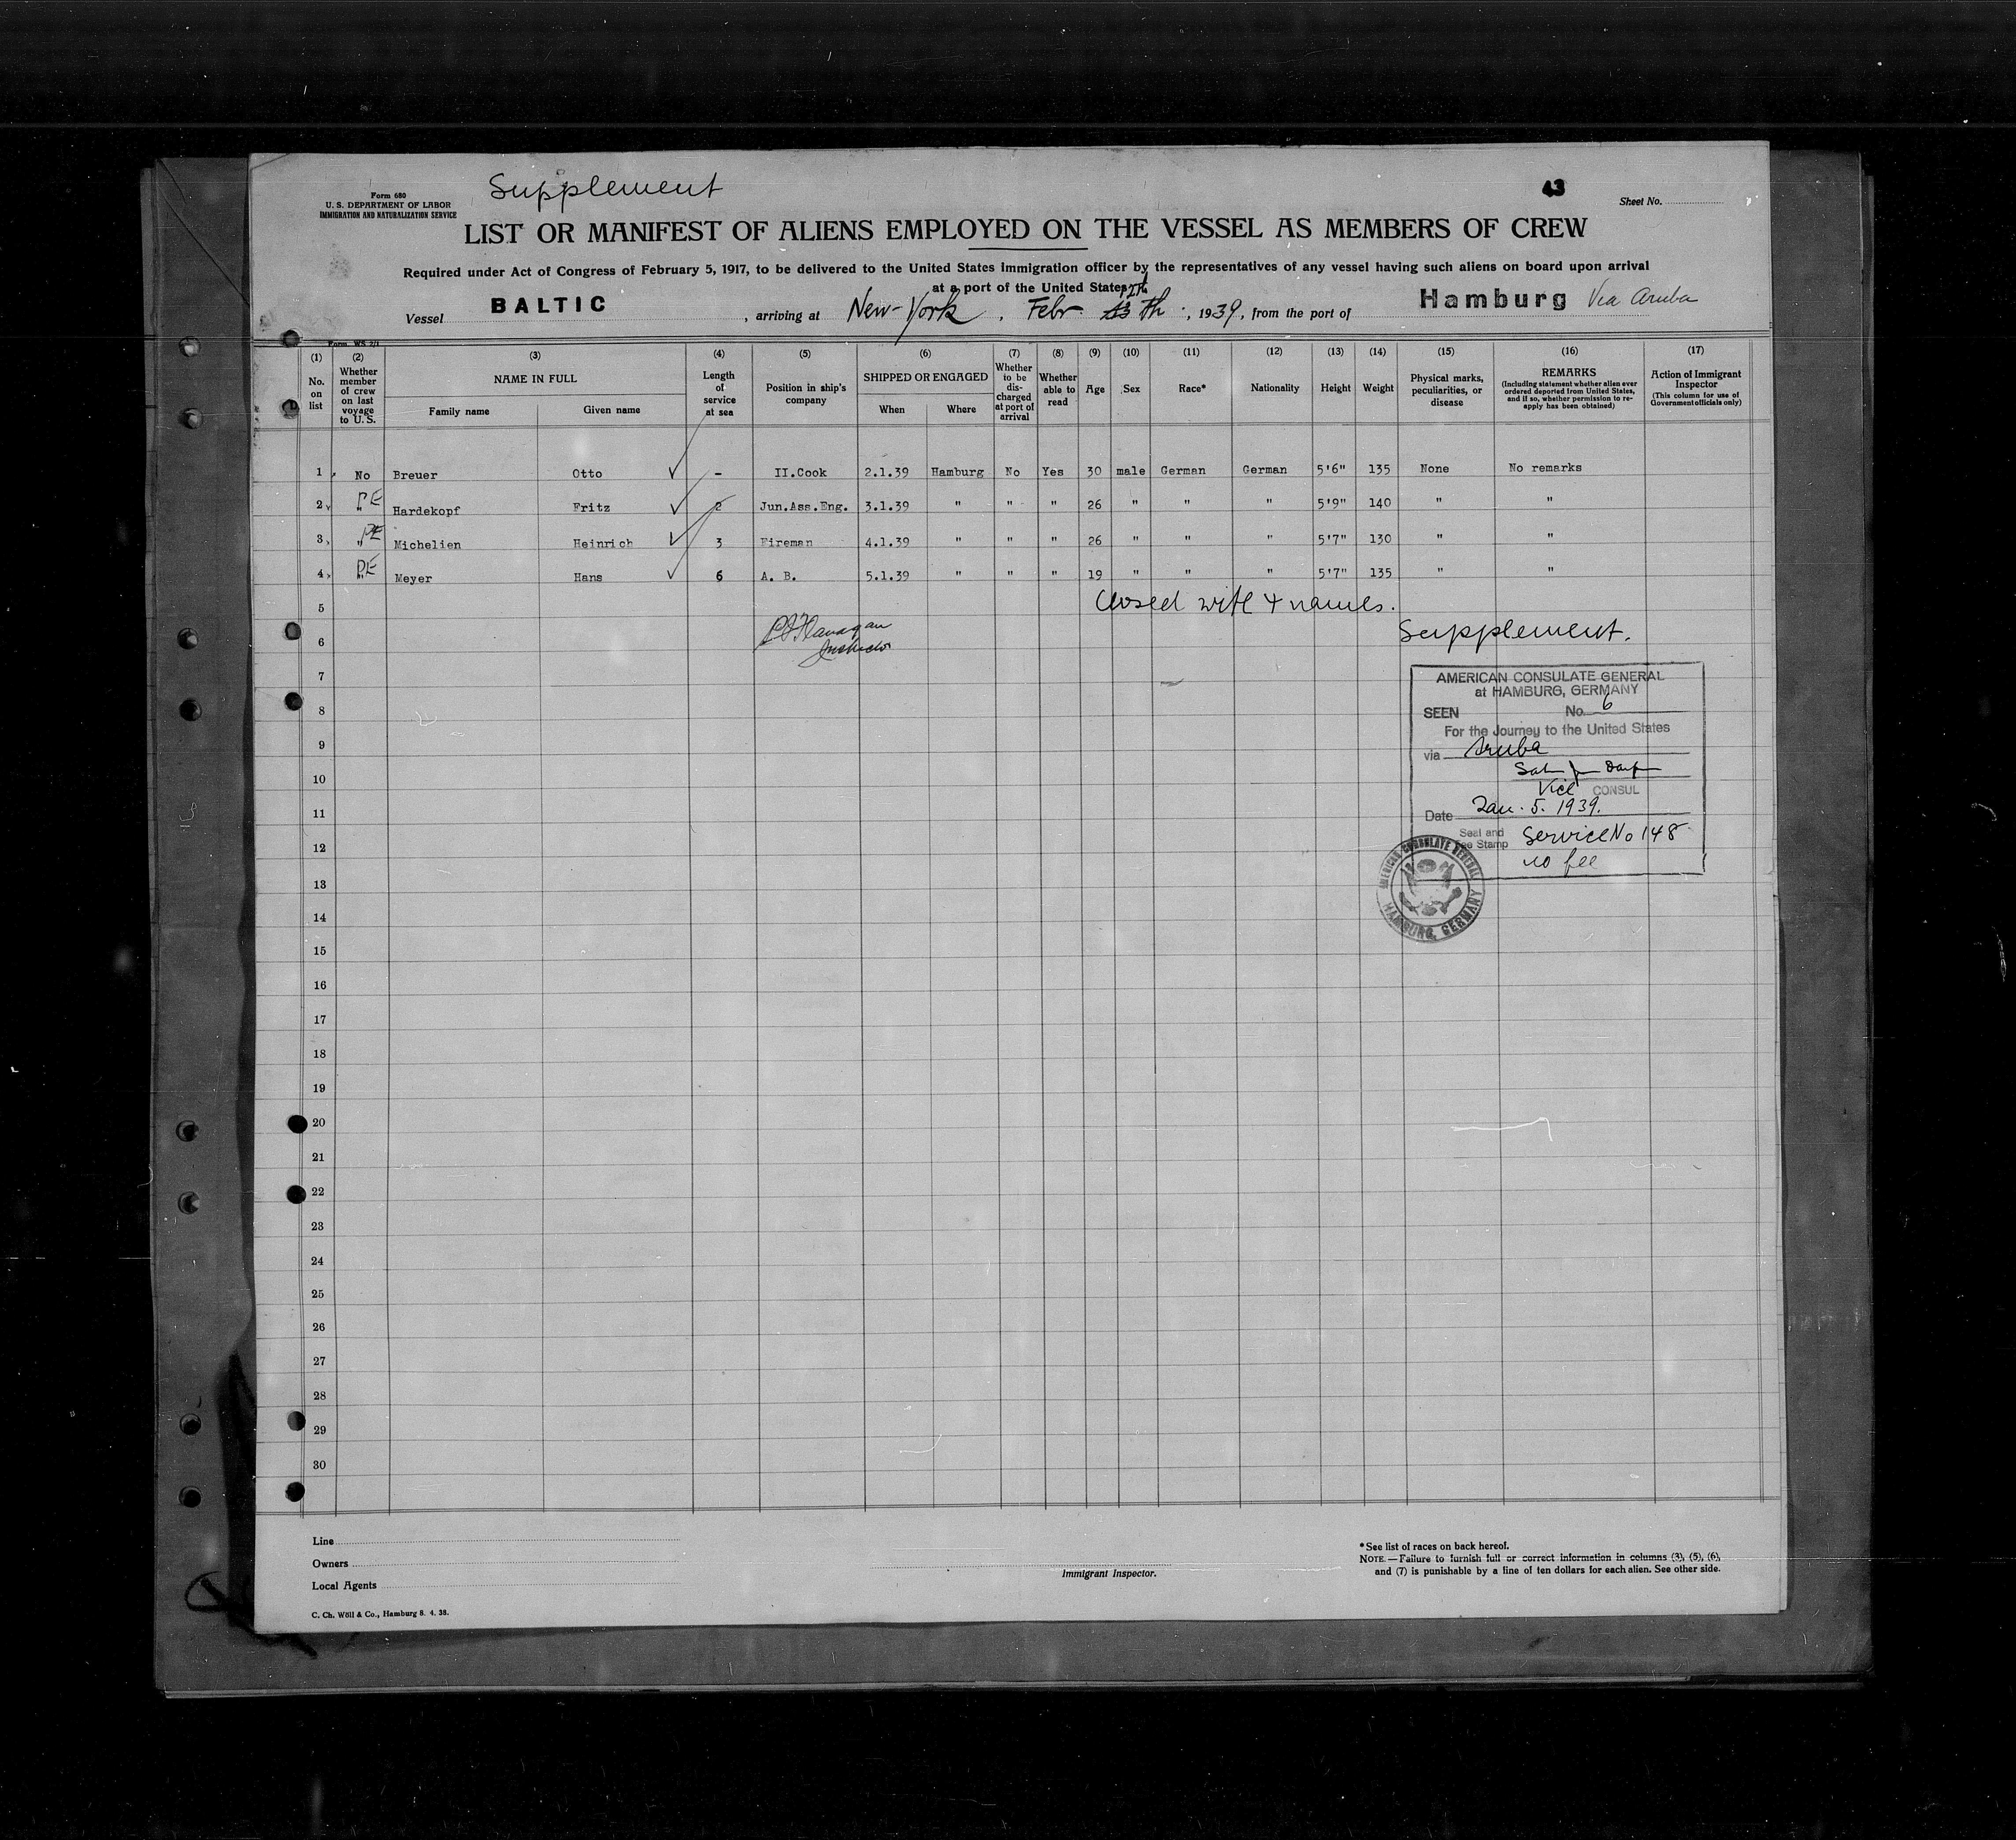 Supplement
43
Form 680
U. S. DEPARTMENT OF LABOR
IMMIGRATION AND NATURALIZATION SERVICE
Sheet No.
LIST OR MANIFEST OF ALIENS EMPLOYED ON THE VESSEL AS MEMBERS OF CREW
Required under Act of Congress of February 5, 1917, to be delivered to the United States Immigration officer by the representatives of any vessel having such aliens on board upon arrival
at a port of the United States
12th
Vessel BALTIC, arriving at New-York, Febr. 13th, 1939, from the port of Hamburg Via Aruba
Form WS 2/1
(1) (2) (3) (4) (5) (6) (7) (8) (9) (10) (11) (12) (13) (14) (15) (16) (17)
No. on list
Whether member of crew on last voyage to U. S.
NAME IN FULL
Family name
Given name
Length of service at sea
Position in ship's company
SHIPPED OR ENGAGED
When
Where
Whether to be discharged at port of arrival
Whether able to read
Age
Sex
Race*
Nationality
Height
Weight
Physical marks, peculiarities, or disease
REMARKS
(Including statement whether alien ever ordered deported from United States, and if so, whether permission to reapply has been obtained)
Action of Immigrant Inspector
(This column for use of Government officials only)
1 No Breuer Otto ✓ - II.Cook 2.1.39 Hamburg No Yes 30 male German German 5'6" 135 None No remarks
2 " PE Hardekopf Fritz ✓ 2 Jun.Ass.Eng. 3.1.39 " " " 26 " " " 5'9" 140 " "
3 " PE Michelien Heinrich ✓ 3 Fireman 4.1.39 " " " 26 " " " 5'7" 130 " "
4 " PE Meyer Hans ✓ 6 A. B. 5.1.39 " " " 19 " " " 5'7" 135 " "
5 Closed with 4 names.
Supplement.
6 Flanagan
Inspector
7
8
9
10
11
12
13
14
15
16
17
18
19
20
21
22
23
24
25
26
27
28
29
30
AMERICAN CONSULATE GENERAL
at HAMBURG, GERMANY
SEEN No. 6
For the Journey to the United States
via Aruba
Vice CONSUL
Date Jan. 5. 1939.
Seal and Fee Stamp
Service No 148
no fee
AMERICAN CONSULATE GENERAL
HAMBURG, GERMANY
Line
Owners
Local Agents
Immigrant Inspector.
*See list of races on back hereof.
NOTE.—Failure to furnish full or correct information in columns (3), (5), (6),
and (7) is punishable by a fine of ten dollars for each alien. See other side.
C. Ch. Wöll & Co., Hamburg 8. 4. 38.